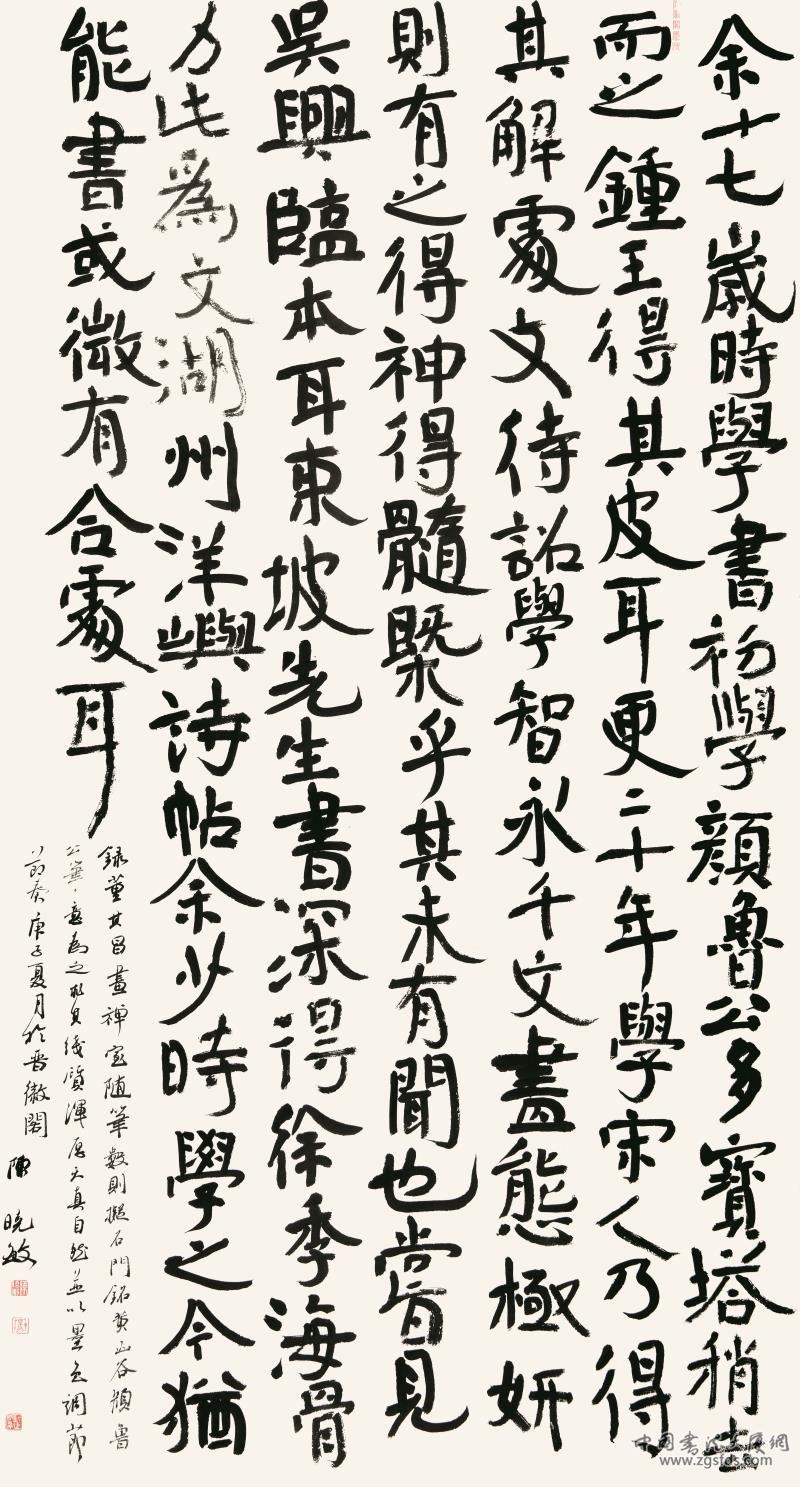 余十七歲時學書初學顏魯公多寶塔稍去
而之鍾王得其皮耳更二十年學宋人乃得
其解處文待詔學智永千文盡態極妍
則有之得神得髓槩乎其未有聞也嘗見
吳興臨本耳東坡先生書深得徐季海骨
力此為文湖州洋嶼詩帖余少時學之今猶
能書或微有合處耳
録董其昌畫禪室随筆數則擬石門銘黄山谷顏魯
公筆意為之线質渾厚天真自然並以墨色調節
節奏庚子夏月於晋徽閣 陳曉敏
中国書法大展網
www.zgsfds.com